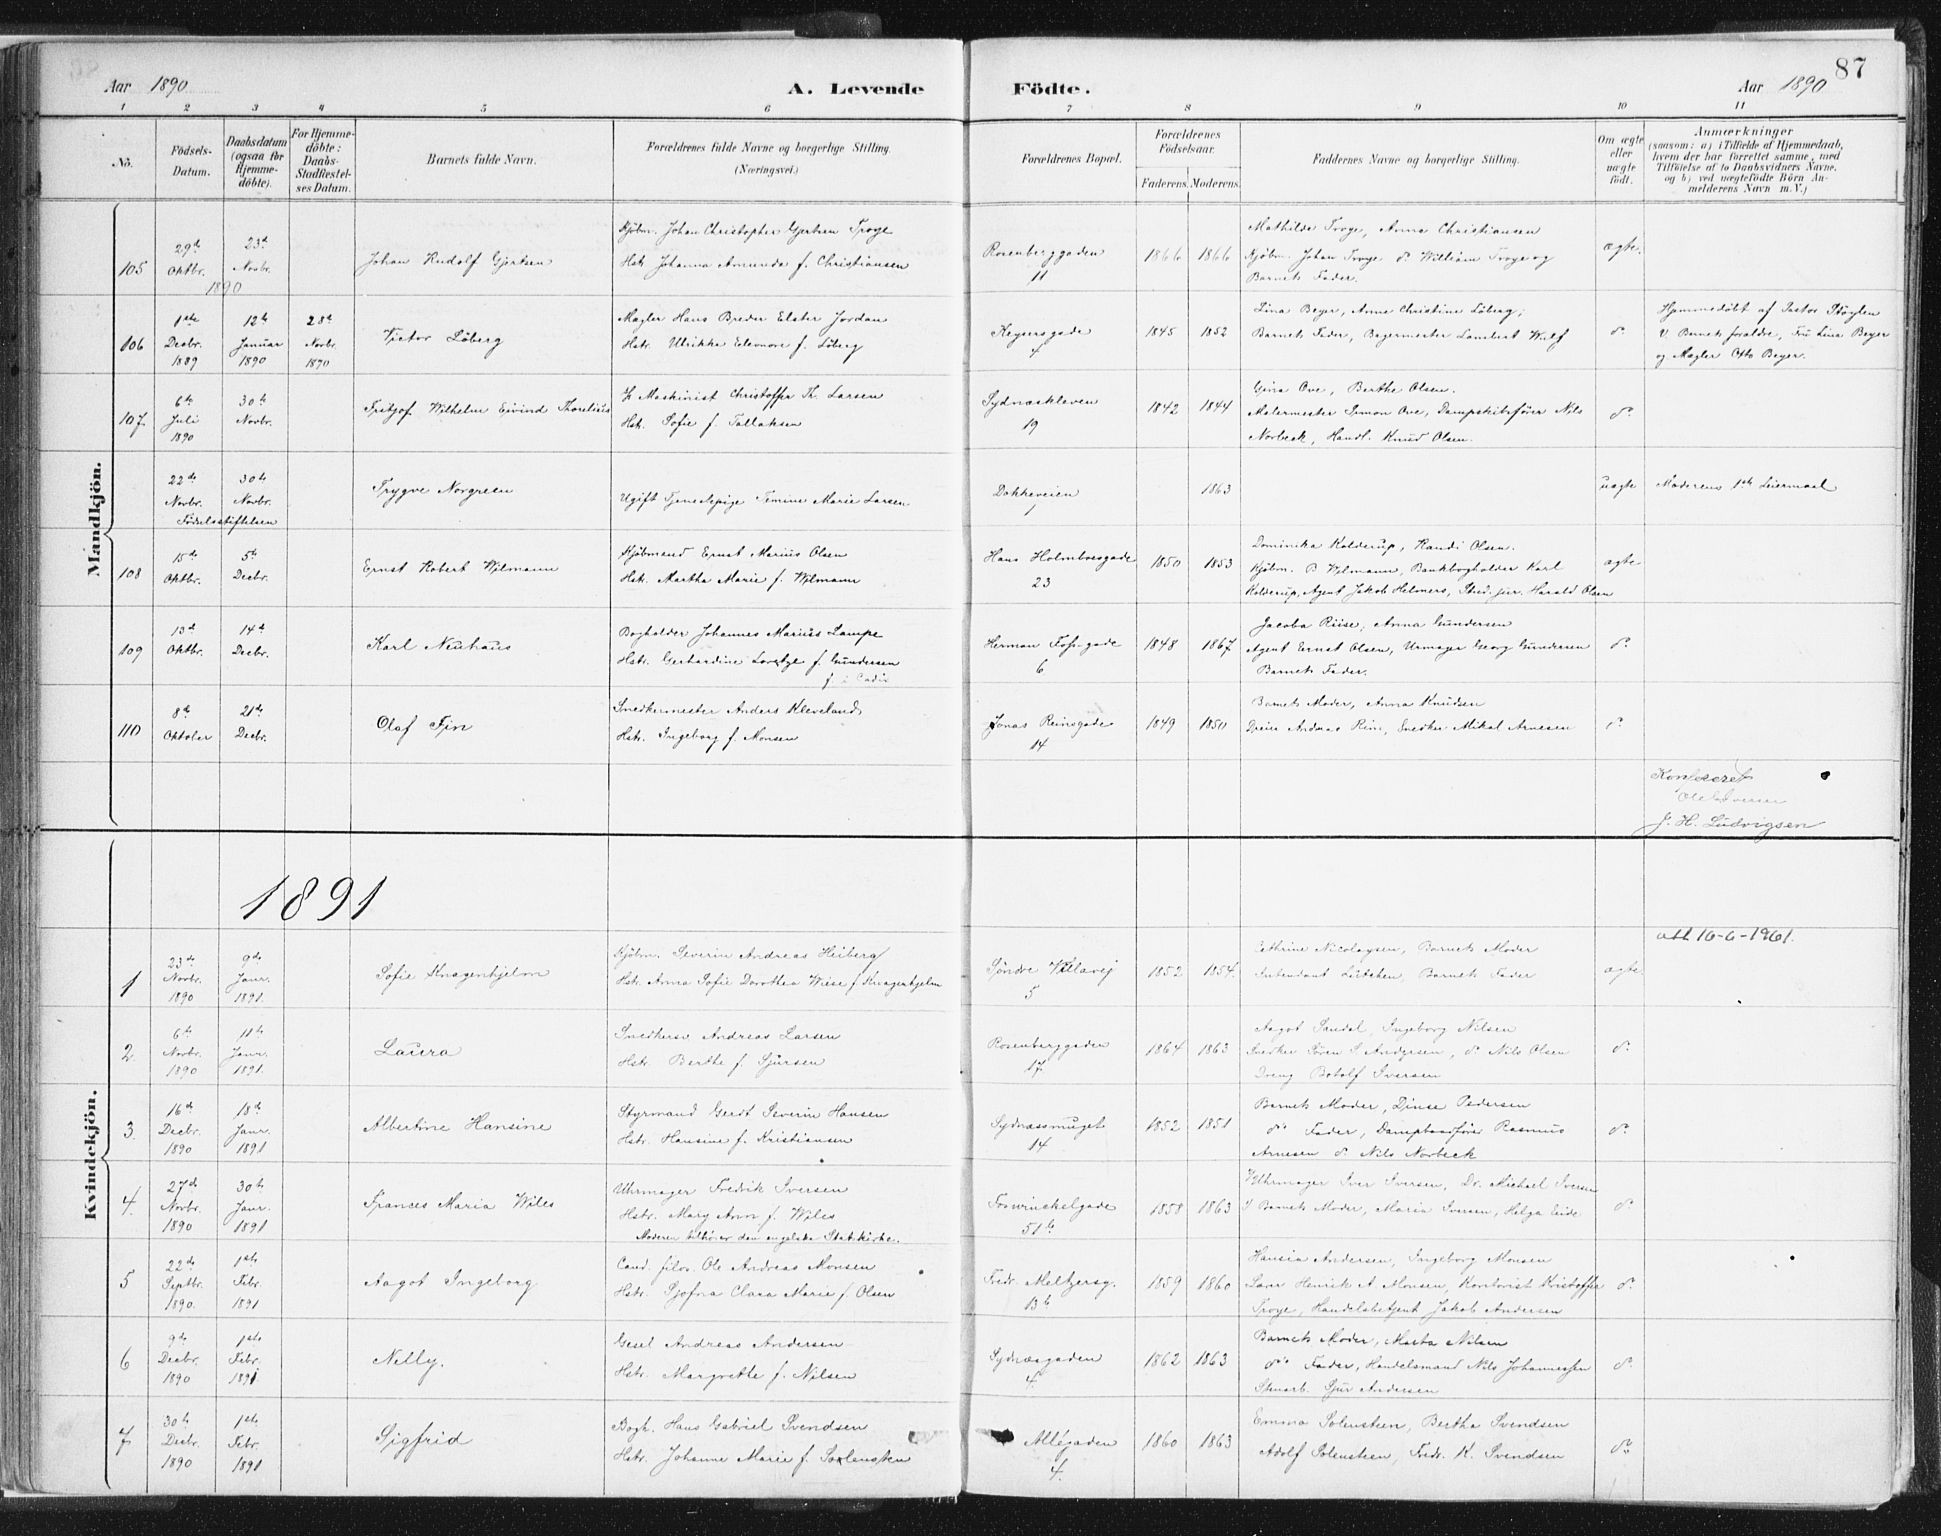 Aar 1890
A. Levende Födte.
Aar 1890
87
1 2 3 4 5 6 7 8 9 10 11
No.
Födsels-Datum.
Daabsdatum (ogsaa for Hjemme-döbte).
For Hjemme-döbte: Daabs-Stadfæstel-ses Datum.
Barnets fulde Navn.
Forældrenes fulde Navne og borgerlige Stilling. (Næringsvei.)
Forældrenes Bopæl.
Forældrenes Födselsaar.
Faderens. Moderens.
Faddernes Navne og borgerlige Stilling.
Om ægte eller uægte födt.
Anmærkninger
(saasom: a) i Tilfælde af Hjemmedaab,
hvem der har forrettet samme, med
Tilföielse af to Daabsvidners Navne,
og b) ved uægtefödte Börn An-
melderens Navn m. V.)
Mandkjön.
105
29de Oktbr. 1890
23de Novbr.
Johan Rudolf Gjertsen
Kjöbm. Johan Christopher Gjertsen Troye
Hstr. Johanna Amunda f. Christiansen
Rosenberggaden 11
1866 1866
Mathilde Troye, Anna Christiansen
Kjöbm. Johan Troye do William Troye og
Barnets Fader.
ægte.
106
1ste Decbr. 1889
12te Januar 1890
28de Novbr. 1890
Victor Löberg
Mægler Hans Breder Elster Jordan
Hstr. Ulrikke Eleonore f. Löberg
Keysersgade 4
1845 1852
Lina Beyer, Anne Christine Löberg;
Barnets Fader, Bøgermester Lambert Wulf
do
Hjemmedöbt af Pastor Stöylen
v. Barnets foraldre, Fru Lina Beyer
og Mægler Otto Beyer.
107.
6te Juli 1890
30te Novbr.
Fritjof Wilhelm Eivind Thorelius
Maskinist Christoffer Th. Larsen
Hstr. Sofie f. Tallaksen
Sydnæskleven 19
1842 1844
Gina Ove, Berthe Olsen.
Malermester Simon Ove, Dampskibsförer Nils
Norbeck, Handl. Knud Olsen.
do
22de Novbr.
30te Novbr.
Födselsstiftelsen
Trygve Norgreen
Ugift Tjenestepige Temine Marie Larsen
Dokkeveien 1
1863
uægte
Moderens 1ste Leiermaal
108
15de Oktbr.
5te Decbr.
Ernst Robert Wilmann
Kjöbmand Ernst Marius Olsen
Hstr. Martha Marie f. Wilmann
Hans Holmboesgade 23
1850 1853
Dominika Kolderup, Randi Olsen.
Kjöbm. B Wilmann, Bankbogholder Karl
Kolderup, Agent Jakob Helmers, Stud. jur. Harald Olsen
ægte
109
13de Oktbr.
14de Decbr.
Karl Neuhaus
Bogholder Johannes Marius Lampe
Hstr. Gerhardine Lovetze f. Gundersen
f. i Cadix
Herman Fossgade 6
1848 1867
Jacoba Riise, Anna Gundersen
Agent Ernst Olsen, Urmager Georg Gundersen
Barnets Fader.
do
110
8de Oktober
21de Decbr.
Olaf Fin
Snedkermester Anders Kleveland
Hstr. Ingeborg f. Monsen
Jonas Reinsgade 14
1849 1850
Barnets Moder, Anna Knudsen
Dreier Andreas Rein, Snedker Mikal Arnesen
do
Konfereret
J. H. Ludvigsen
1891
Kvindekjön.
1
23de Novbr. 1890
9de Janr. 1891.
Sofie Knagenhjelm
Kjöbm. Severin Andreas Heiberg
Hstr. Anna Sofie Dorothea Wiese f. Knagenhjelm
Söndre Villavej 5
1852 1854.
Cathrine Nicolaysen, Barnets Moder
Intendant Lütcken, Barnets Fader
ægte
att 16-6-1961.
2.
6te Novbr. 1890
11te Janr. 1891.
Laura
Snedkersv. Andreas Larsen
Hstr. Berthe f. Sjursen
Rosenberggaden 17.
1864 1863
Aagot Sandal, Ingeborg Nilsen
Snedker Sören S Andersen, do Nils Olsen
Dreng Botolf Iversen
do
3.
16de Decbr. 1890
18de Janr. 1891
Albertine Hansine
Styrmand Gerdt Severin Hansen
Hstr. Hansine f. Kristiansen
Sydnæssmuget 14
1852 1851
Barnets Moder, Dinse Pedersen
do Fader, Dampbaadförer Rasmus
Arnesen do Nils Norbeck
do
4.
27de Novbr. 1890
30te Janr. 1891
Frances Maria Wiles
Uhrmager Fredrik Iversen
Hstr. Mary Ann f. Wiles
Moderen tilhører den engelske Statskirke.
Foswinckelgade 51b
1858 1863
Uhrmager Iver Iversen, Dr. Michael Iversen
Barnets Moder, Maria Iversen, Helga Eide
do
5
22de Septbr. 1890.
1ste Febr. 1891
Aagot Ingeborg
Cand. filos. Ole Andreas Monsen
Hstr. Sjofna Clara Marie f. Olsen
Fredr. Meltzersg. 13b
1859 1860
Hansia Andersen, Ingeborg Monsen
Henrik A Monsen, Kontorist Kristoffer
Troye, Handelsbetjent Jakob Andersen
do
6
9de Decbr. 1890
1ste Febr. 1891
Nelly.
Gesel Andreas Andersen
Hstr. Margrethe f. Nilsen
Sydnæsgaden 4.
1862 1863
Barnets Moder, Marta Nilsen
do Fader, Handelsmand Nils Johannessen
Sjur Andersen
do
7
30te Decbr. 1890
1ste Febr. 1891
Sigfrid
Bogh. Hans Gabriel Svendsen
Hstr. Johanne Marie f. Solensten
Allégaden 4.
1860 1863
Emma Solensteen, Bertha Svendsen
Adolf Solensteen, Fredr. K. Svendsen
do